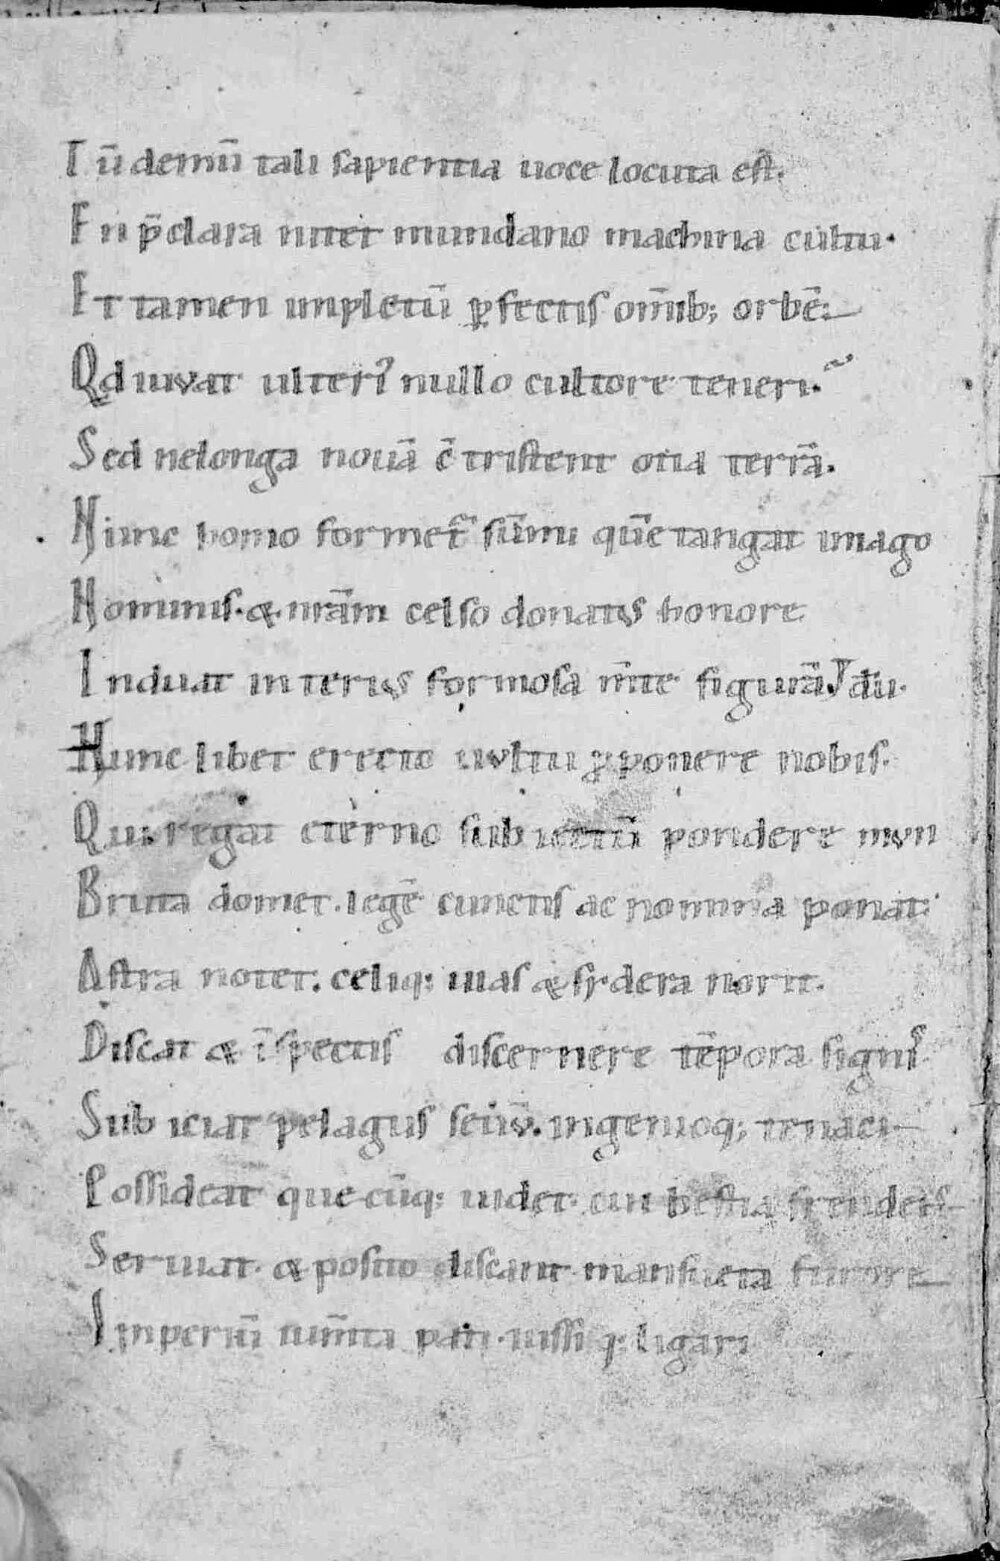 Tū demū tali sapientia uoce locuta est.
En p̄clara nitet mundano machina cultu.
Et tamen impletū ꝑfectis om̄ib; orbē.
Qd iuvat ulteri᾿ nullo cultore teneri.
Sed ne longa nouā c̄tristent otia terrā.
Hinc homo formet᷑ sūmi quē tangat imago
Hominis. & nr̄am celso donatus honore
Induat interius formosa m̄te figurā
Hunc libet erecto uvltu ꝓponere nobis.
Qui regat eterno subiectū pondere mvn
Bruta domet. legē cunctis ac nomina ponat.
Astra notet. celiq; uias & sydera norit.
Discat & īspectis discernere tēpora signis
Subiciat pelagus seuv̄. ingenioq; tenaci
Possideat que cūq; uidet. cui bestia frendens
Seruiat. & posito discant mansueta furore
Imperiū ium̄ta pati. iussiq; ligari